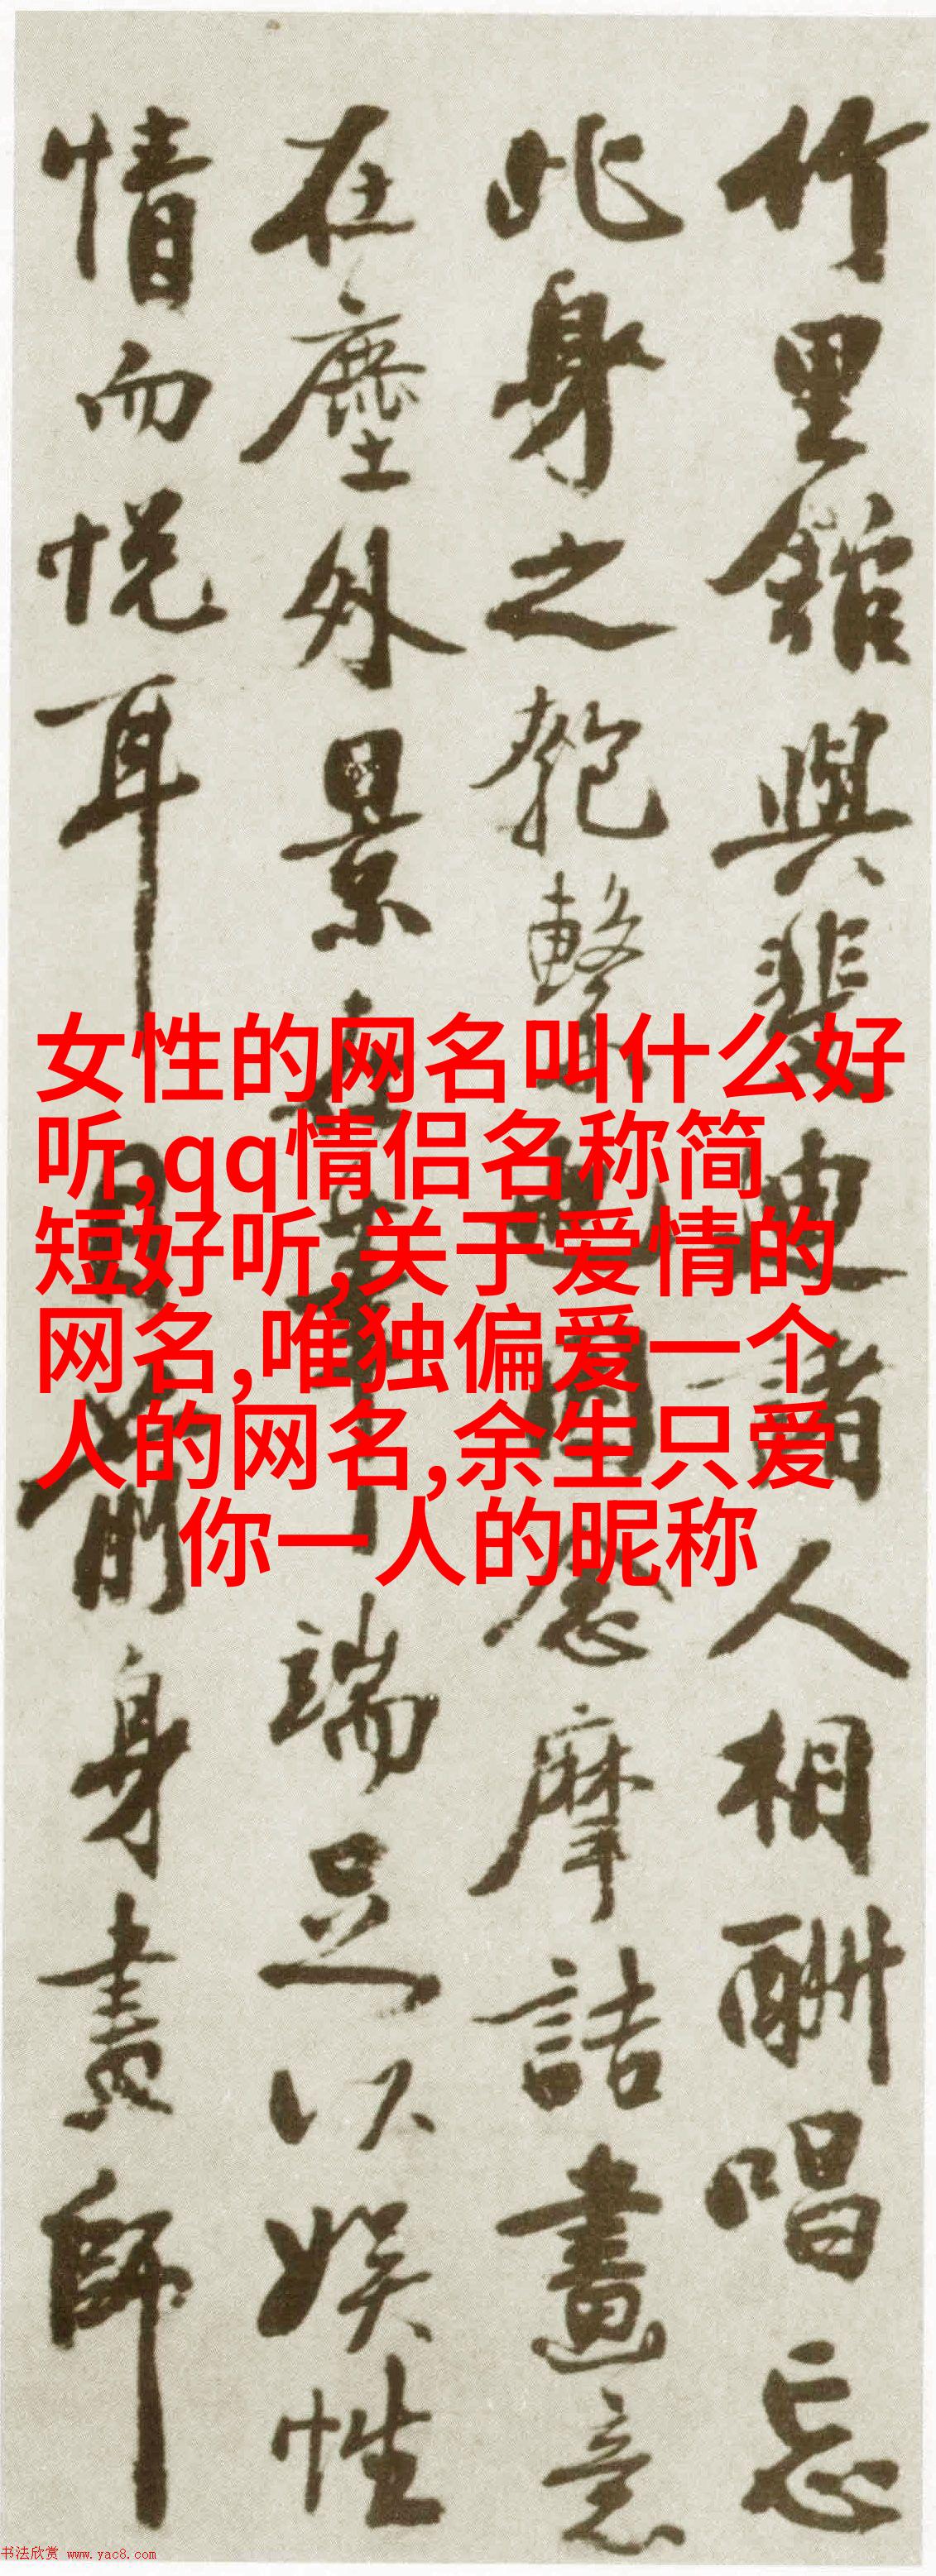 竹里館與裴迪諸人相酬唱忘
此身之匏繫也因念摩詰畫意
在塵外景端足以娛性
情而悦耳目前身畫師
女性的网名叫什么好
听,qq情侣名称简
短好听,关于爱情的
网名,唯独偏爱一个
人的网名,余生只爱
你一人的昵称
书法欣赏 www.yac8.com